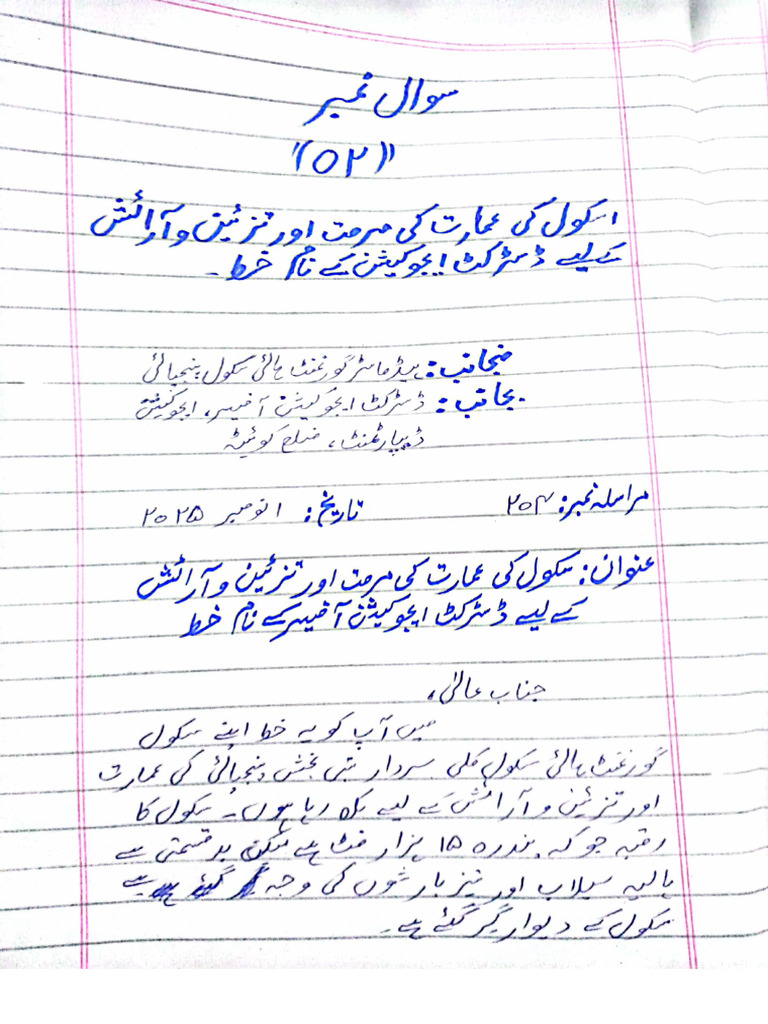 سوال نمبر
"(۰۲)"
اسکول کی عمارت کی مرمت اور تزئین و آرائش
کے لیے ڈسٹرکٹ ایجوکیشن کے نام خط۔
منجانب: ہیڈماسٹر گورنمنٹ ہائی سکول پنجپائی
بجانب: ڈسٹرکٹ ایجوکیشن آفیسر، ایجوکیشن
ڈیپارٹمنٹ، ضلع کوئٹہ
مراسلہ نمبر: ۲۰۴ تاریخ: ۱ نومبر ۲۰۲۵
عنوان: سکول کی عمارت کی مرمت اور تزئین و آرائش
کے لیے ڈسٹرکٹ ایجوکیشن آفیسر کے نام خط
جناب عالیٰ،
میں آپ کو یہ خط اپنے سکول
گورنمنٹ ہائی سکول کلی سردار نبی بخش پنجپائی کی عمارت
اور تزئین و آرائش کے لیے لکھ رہا ہوں۔ سکول کا
رقبہ جو کہ پندرہ ۱۵ ہزار فٹ ہے لیکن بدقسمتی سے
حالیہ سیلاب اور تیز بارشوں کی وجہ سے
سکول کے دیوار گر گئے ہے۔